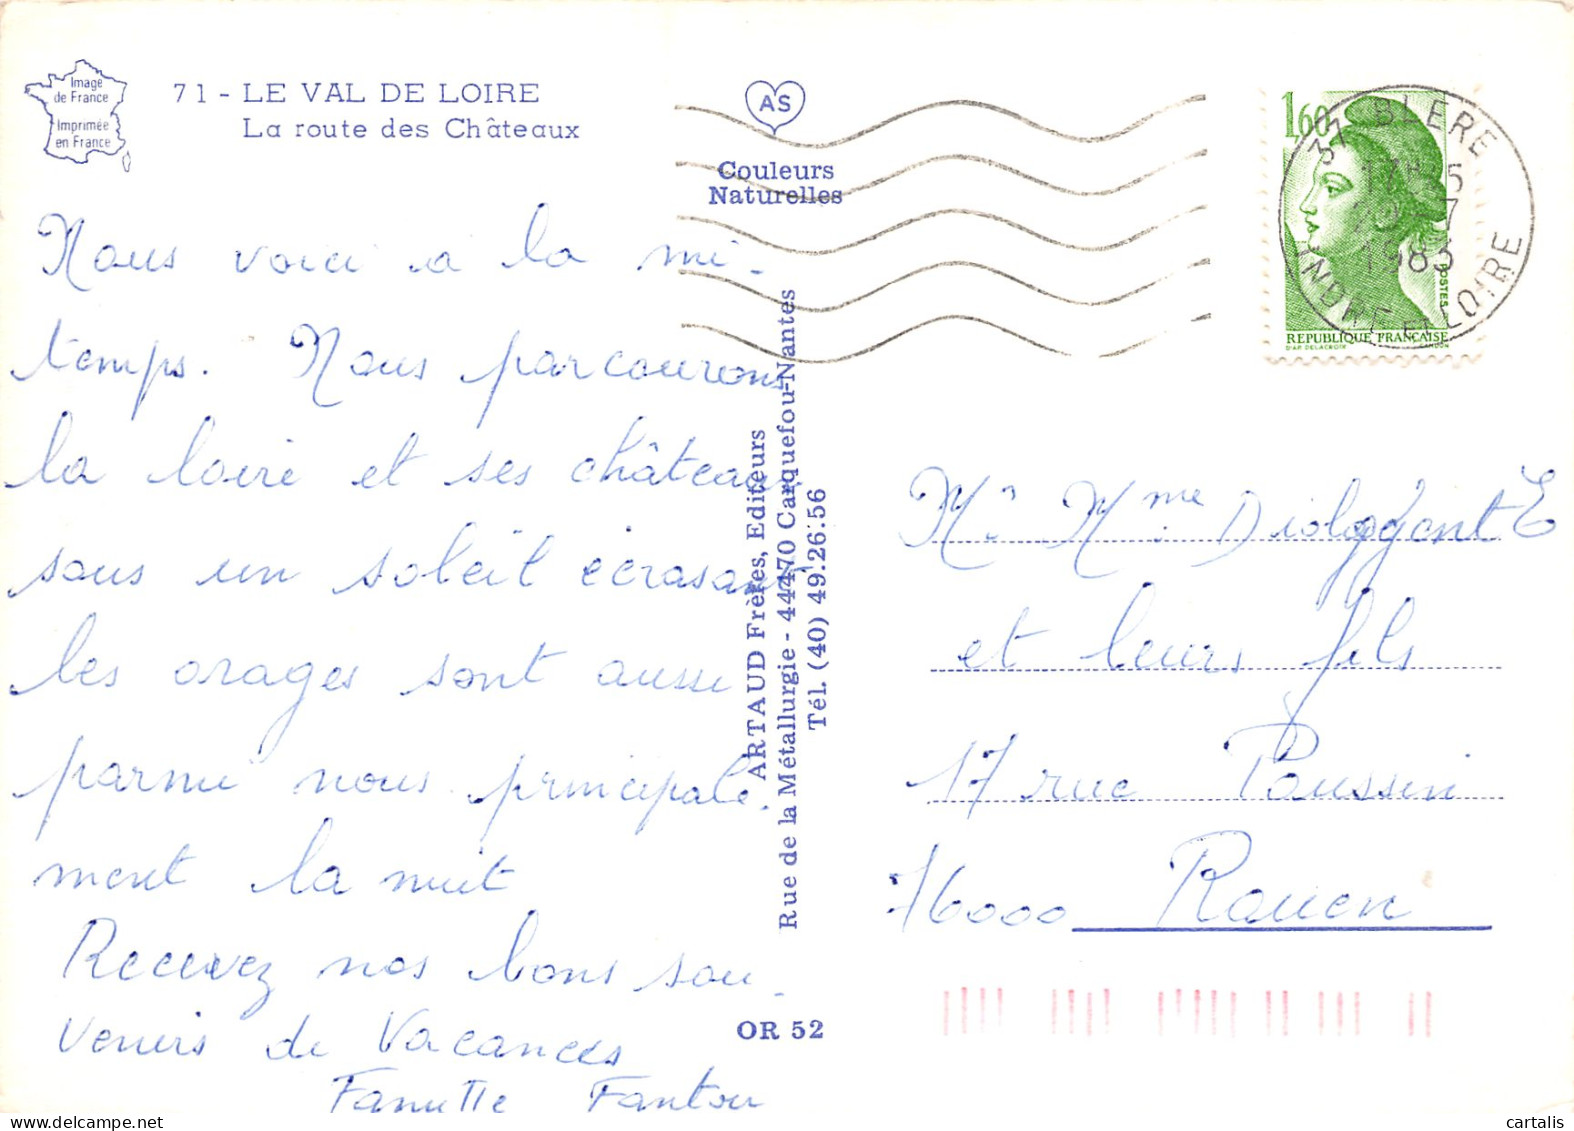 Image
de France
Imprimée
en France
71 - LE VAL DE LOIRE
La route des Châteaux
AS
Couleurs
Naturelles
1,60
POSTES
REPUBLIQUE FRANÇAISE
D'AP. DELACROIX
37 BLERE
1983
INDRE ET LOIRE
Nous voici a la mi-
temps. Nous parcourons
la loire et ses châteaux
sous un soleil écrasant
les orages sont aussi
parmi nous principale-
ment la nuit
Recevez nos bons sou-
venirs de Vacances
Famille Fantou
ARTAUD Frères, Editeurs
Rue de la Métallurgie - 44470 Carquefou-Nantes
Tél. (40) 49.26.56
OR 52
Mr Mme
et leurs fils
17 rue Poussin
76000 Rouen
cartalis